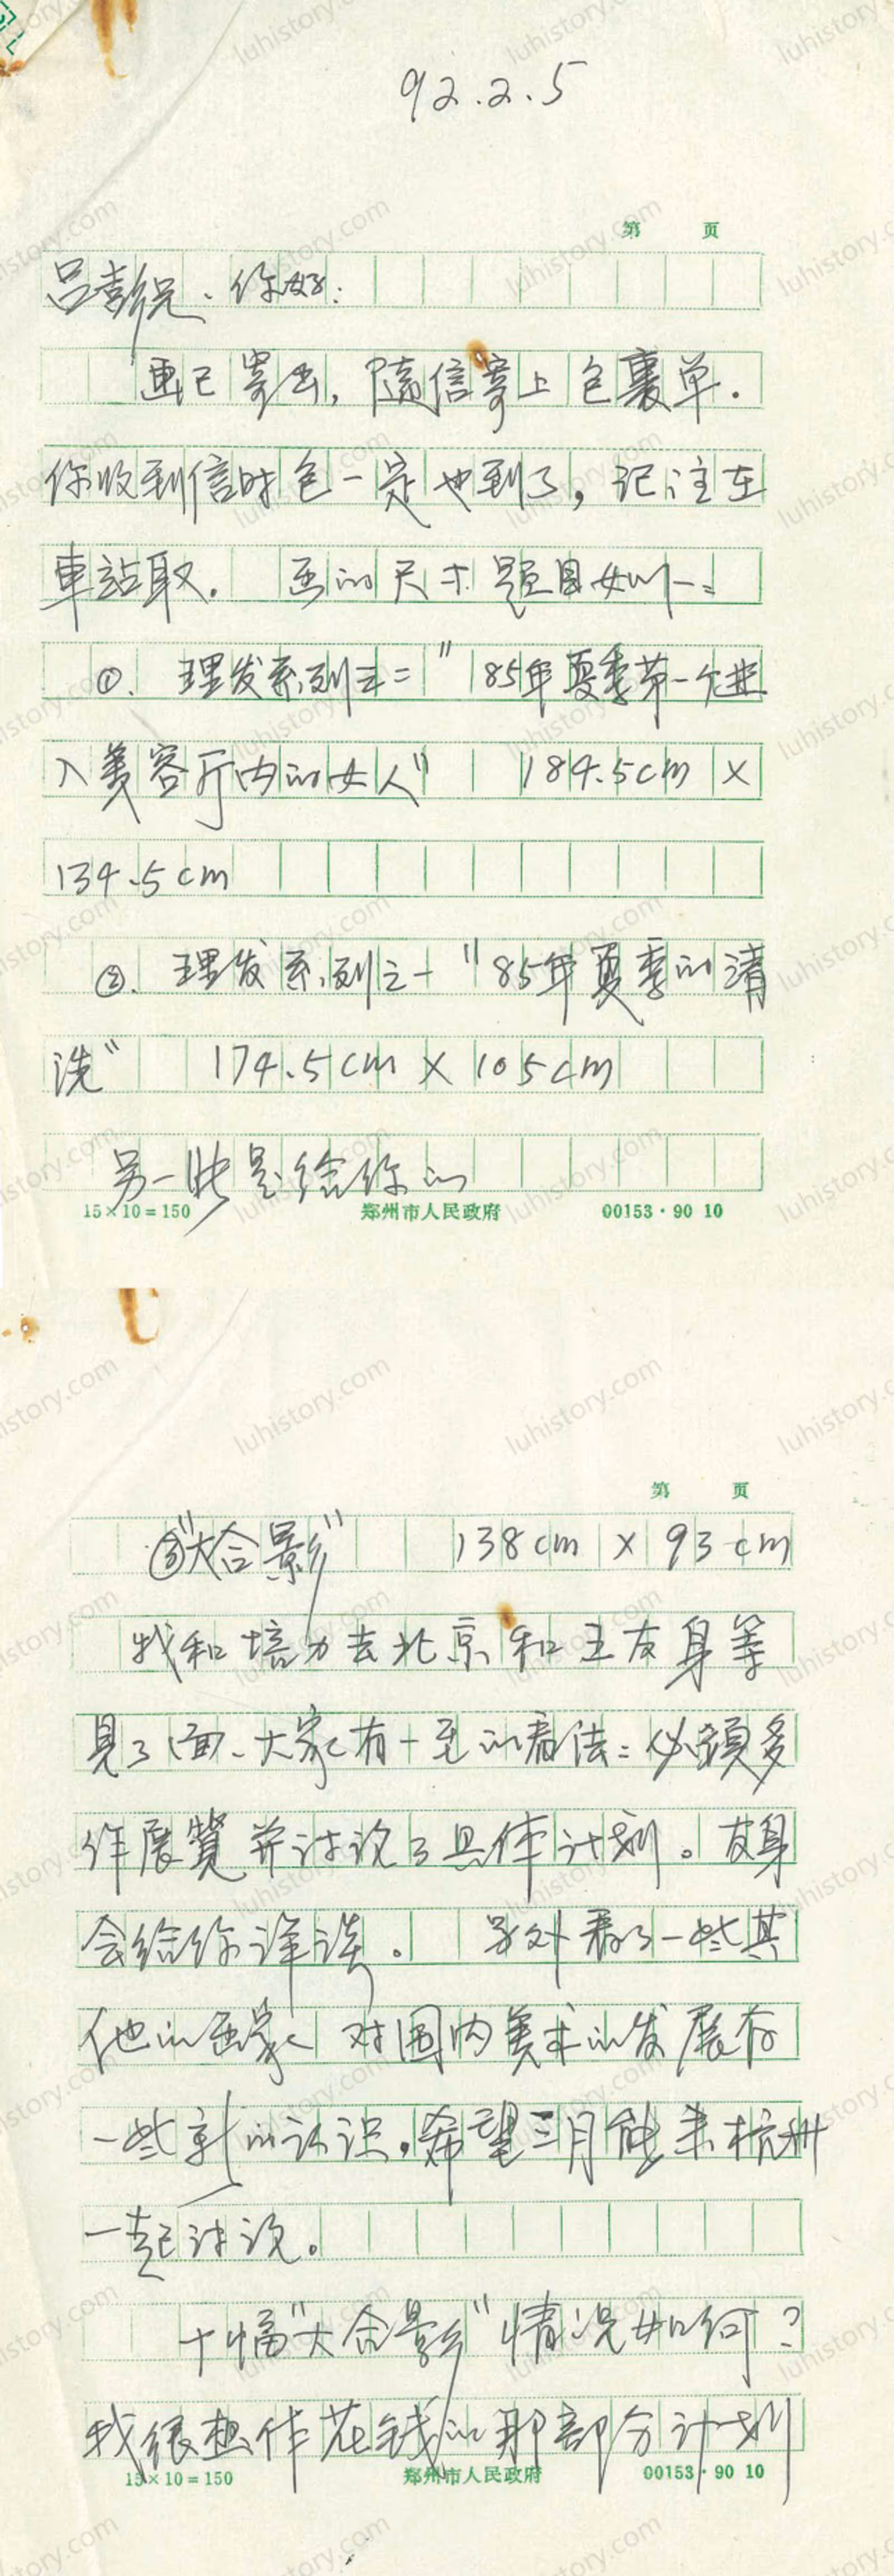 92.2.5
第 页
吕彭兄、你好:
画已寄出, 随信寄上包裹单.
你收到信时包一定也到了, 记注在
車站取. 画的尺寸题目如下:
①. 理发系列之二 "85年夏季第一个进
入美容厅内的女人" 184.5cm ×
134.5cm
②. 理发系列之一 "85年夏季的清
洗" 174.5cm × 105cm
另一张是给你的
15×10=150 郑州市人民政府 00153·90 10
第 页
③"大合影" 138cm × 93cm
我和培力去北京和王友身等
見了面、大家有一至的看法: 必須多
作展覽并讨论了具体计划。友身
会给你详谈。 另外看了一些其
他的画家 对国内美术的发展有
一些新的认识,希望三月能来杭州
一起讨论。
十幅"大合影"情况如何?
我很想作花钱的那部分计划
15×10=150 郑州市人民政府 00153·90 10
luhistory.com